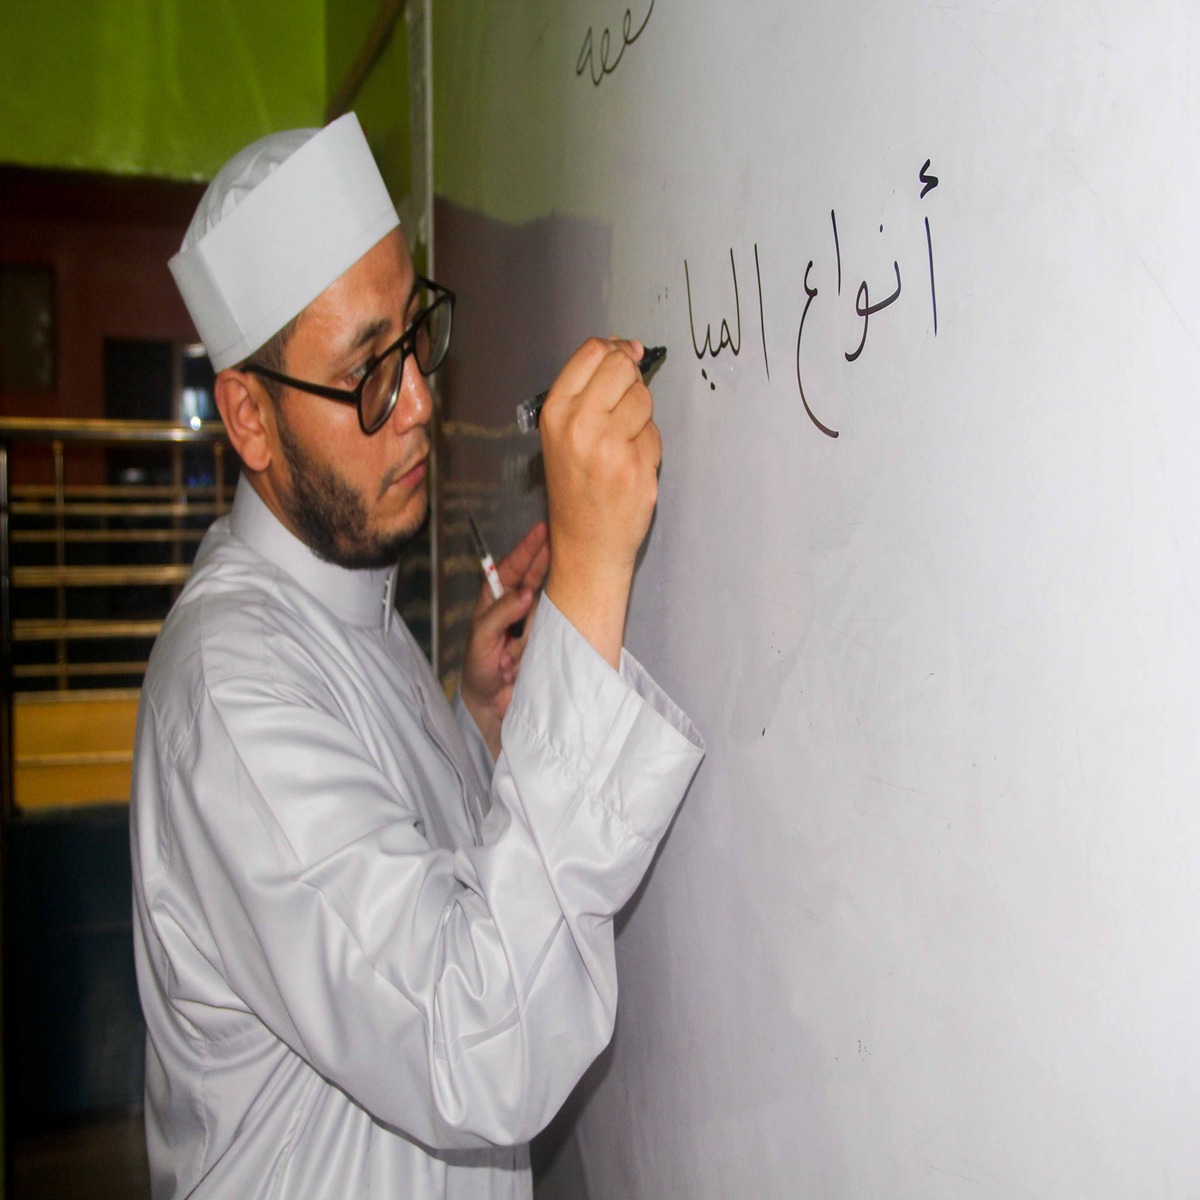 أنواع الميا